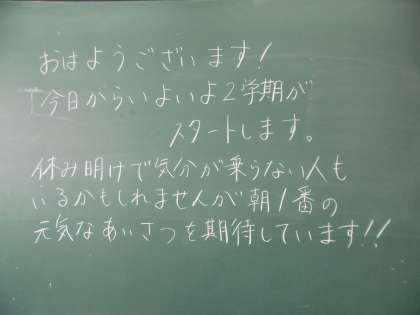 おはようございます!
今日からいよいよ2学期が
スタートします。
休み明けで気分が乗らない人も
いるかもしれませんが朝1番の
元気なあいさつを期待しています!!